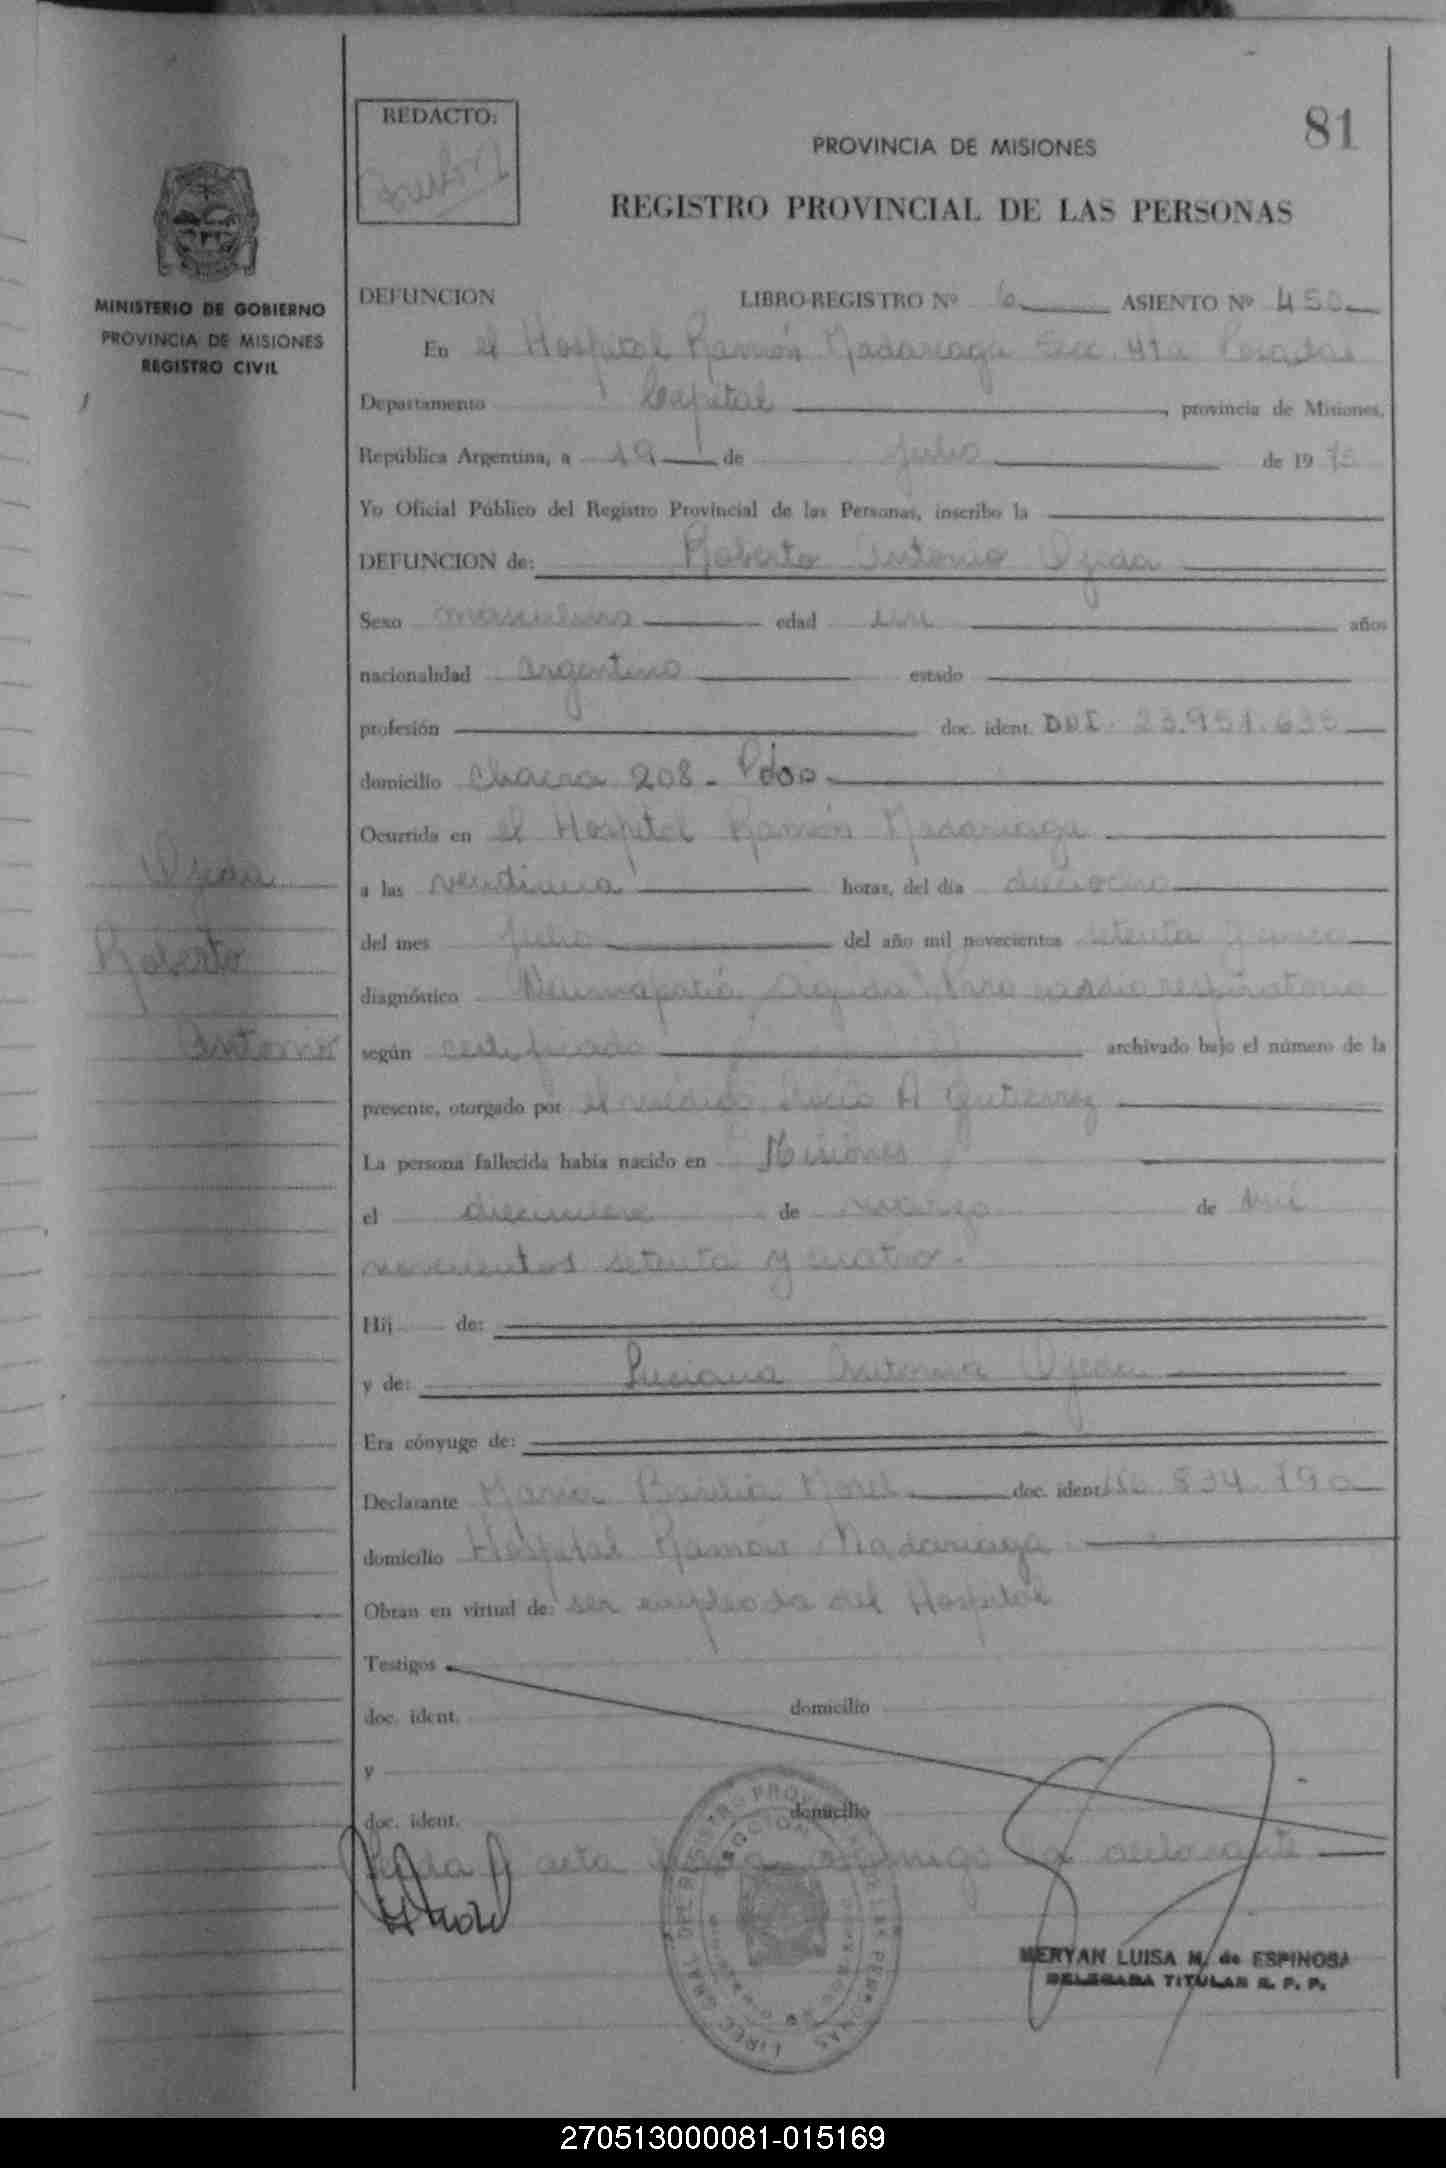 REDACTO:
81
PROVINCIA DE MISIONES
REGISTRO PROVINCIAL DE LAS PERSONAS
MINISTERIO DE GOBIERNO
PROVINCIA DE MISIONES
REGISTRO CIVIL
DEFUNCION LIBRO-REGISTRO Nº 6 ASIENTO Nº 450
En el Hospital Ramón Madariaga Secc. 41a Posadas
Departamento Capital, provincia de Misiones,
República Argentina, a 19 de julio de 1975
Yo Oficial Público del Registro Provincial de las Personas, inscribo la
DEFUNCION de: Roberto Antonio Ojeda
Sexo masculino edad un años
nacionalidad argentino estado
profesión doc. ident. DNI. 23.951.635
domicilio Chacra 208 - Pdas
Ocurrida en el Hospital Ramón Madariaga
a las veintiuna horas, del día dieciocho
del mes julio del año mil novecientos setenta y cinco
diagnóstico Neumopatía Aguda, Paro cardio respiratorio
según certificado archivado bajo el número de la
presente, otorgado por el médico A Gutierrez
La persona fallecida había nacido en Misiones
el diecinueve de marzo de mil
novecientos setenta y cuatro.
Hij de:
y de: Luciana Antonia Ojeda
Era cónyuge de:
Declarante María Basilia Morel doc. ident. 834.190
domicilio Hospital Ramón Madariaga
Obran en virtud de: ser empleada del Hospital
Testigos
doc. ident. domicilio
y
doc. ident. domicilio
Leida el acta firma conmigo la declarante
MERYAN LUISA M. de ESPINOSA
DELEGADA TITULAR R. P. P.
Ojeda
Roberto
Antonio
270513000081-015169